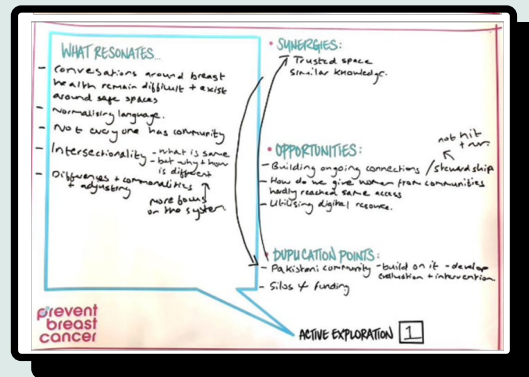 WHAT RESONATES...
- Conversations around breast
health remain difficult + exist
around safe spaces
- Normalising language.
- Not everyone has community
- Intersectionality - what is same
- but why + how
is different
- Differences + commonalities
+ adjusting
more focus
on the system
• SYNERGIES:
Trusted space
similar knowledge.
not hit
+ run
• OPPORTUNITIES:
- Building ongoing connections / stewardship
- How do we give women from communities
hardly reached same access
- Utilising digital resource.
• DUPLICATION POINTS:
- Pakistani community - build on it - develop
evaluation + intervention
- Silos & funding
prevent
breast
cancer
ACTIVE EXPLORATION 1